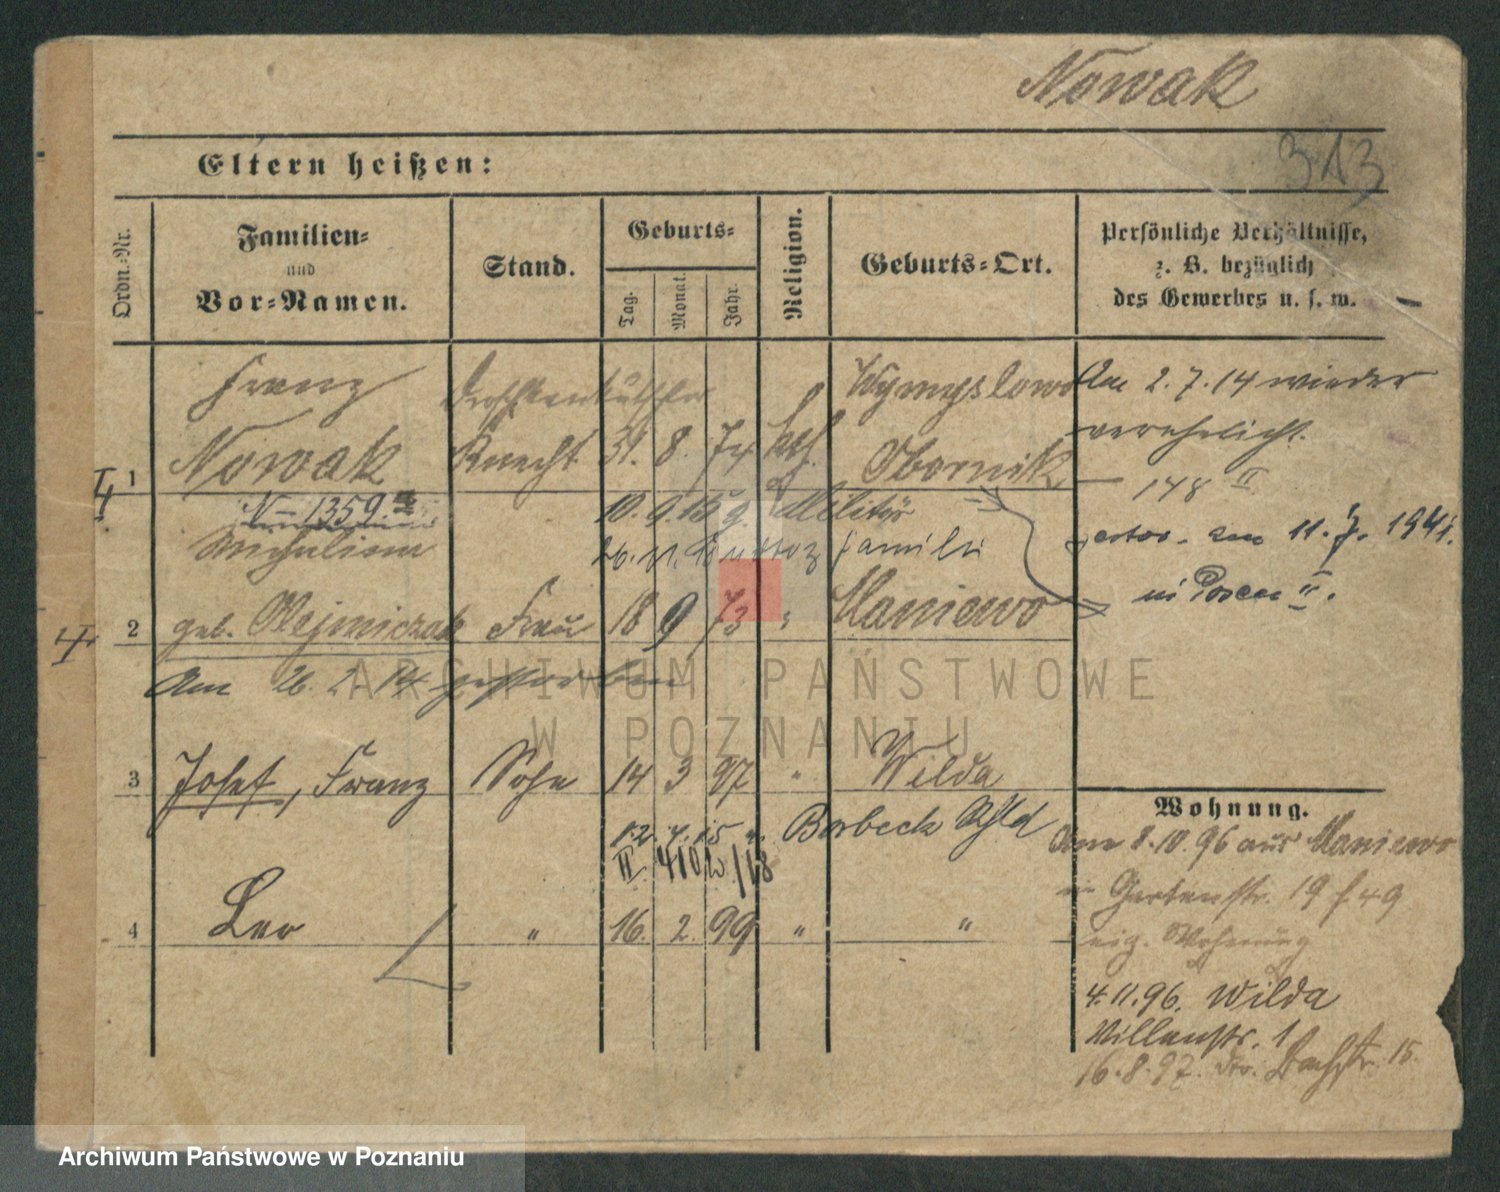 Nowak
313
Eltern heißen:
Ordn.-Nr.
Familien-
und
Vor-Namen.
Stand.
Geburts-
Tag.
Monat.
Jahr.
Religion.
Geburts-Ort.
Persönliche Verhältnisse,
z. B. bezüglich
des Gewerbes u. s. w.
Franz
Droschkenkutscher
Wymyslowo
Am 2.7.14 wieder
verehelicht.
1 Nowak Knecht 31. 8. 74 kth. Obornik
148 II
N 1359
10. 9. 15 g. Militär
26. 11. Familie
gestor. am 11. 7. 1941.
in Posen II.
2 geb. Olejniczak Frau 18 9 73 " Maniewo
Am 26. 2. 14 gestorben
ARCHIWUM PAŃSTWOWE
W POZNANIU
3 Josef, Franz Sohn 14 3 97 " Wilda
12 7. 15 n. Borbeck Rhld
II 410 /18
4 Leo " 16. 2. 99 " "
Wohnung.
Am 8.10.96 aus Maniewo
Gartenstr. 19 f 49
eig. Wohnung
4.11.96. Wilda
Villenstr. 1
16.8.97. Bachstr. 15
Archiwum Państwowe w Poznaniu